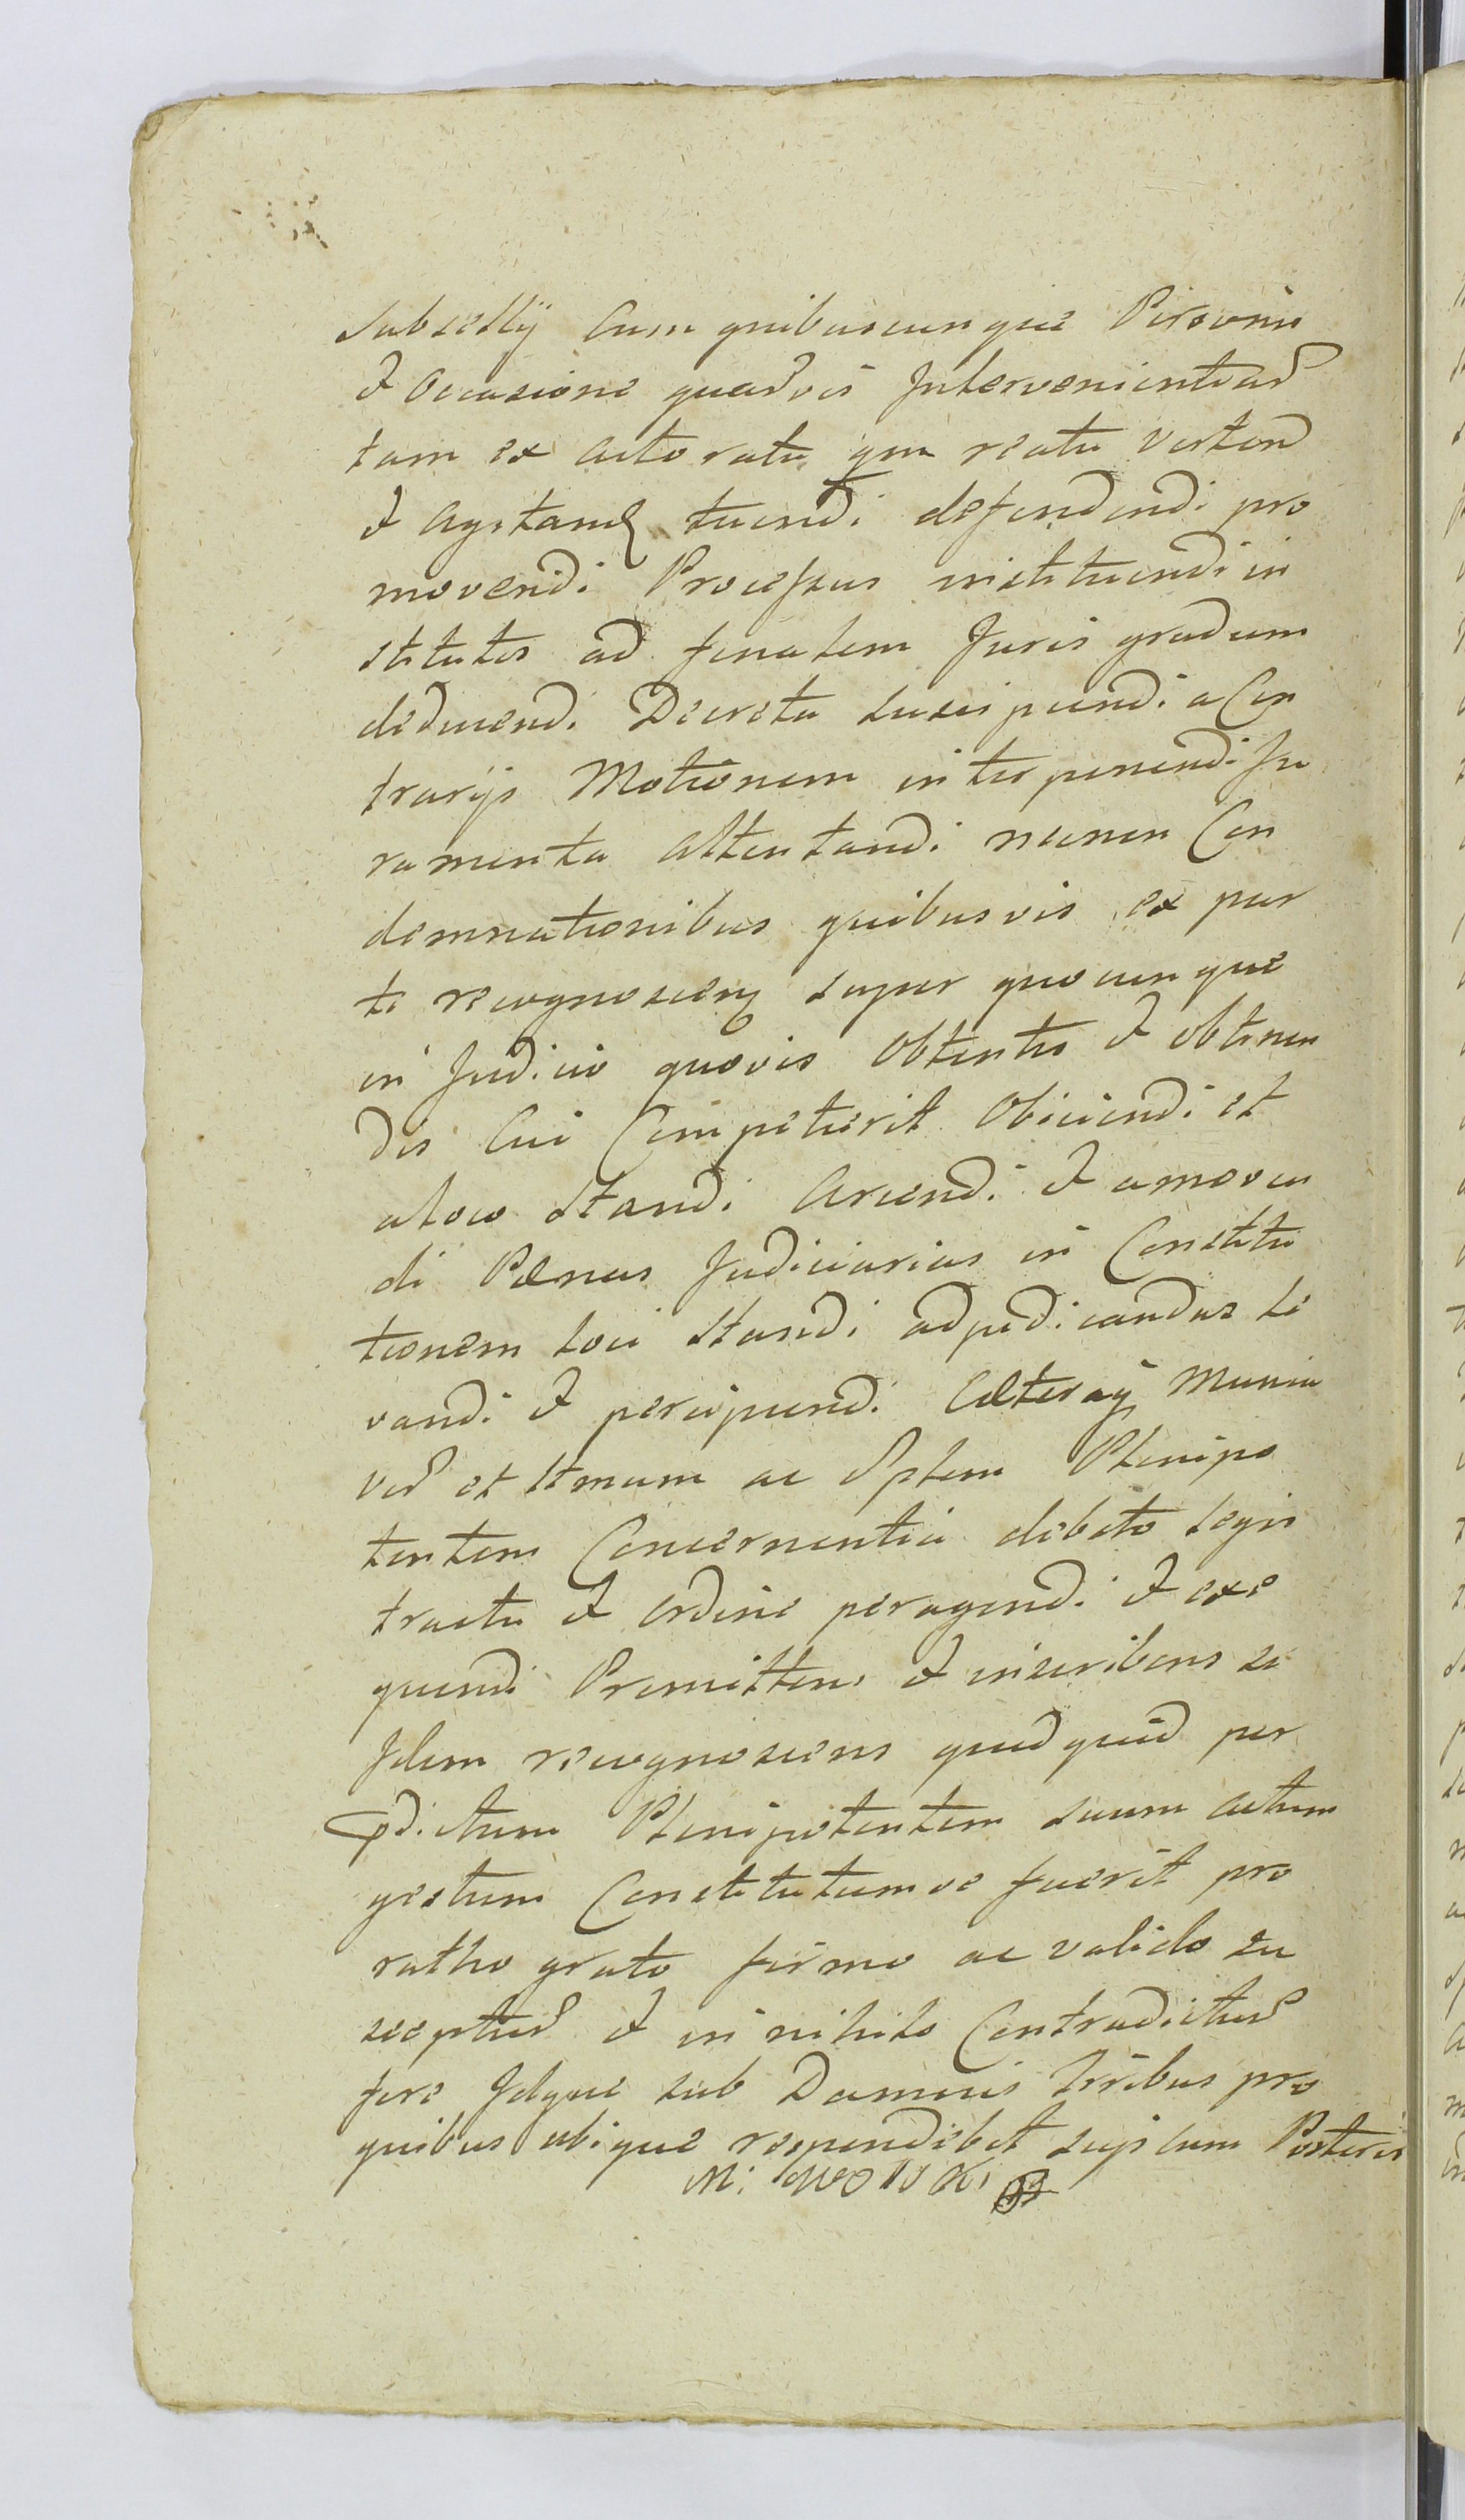 Subsellij Cum quibuscunque Personis
et Occasione quarvis Intervenientium
tam ex actoratu qm reatu verten
et Agitand tuendi defendendi pro
movendi Processus instituendi in
stitutos ad finalem Juris gradum
deducendi Decreta suscipiendi a Con
trarijs Motionem interponendi Ju
ramenta attentandi necnon Con
demnationibus quibusvis ex par
te recognoscen super quocunque
in Judicio quovis Obtentis et obtinen
dis Cui Competierit Obiiciendi et
a loco Standi Arcendi et amoven
di Pænas Judiciarias in Constitu
tionem loci Standi adjudicandas le
vandi et percipiendi Cæteraq Munia
ver et ltmum ac Splem Plenipo
tentem Concernentia debito legis
tractu et ordine peragendi et exe
quendi Promittens et inscribens se
Idem recognoscens quidquid per
pdictum Plenipotentem suum actum
gestum Constitutumve fuerit pro
ratho grato firmo ac valido su
scepturum et in nihilo Contradicturum
fore Idque sub Damnis Terribus pro
quibus ubique respondebit seips cum Posteris